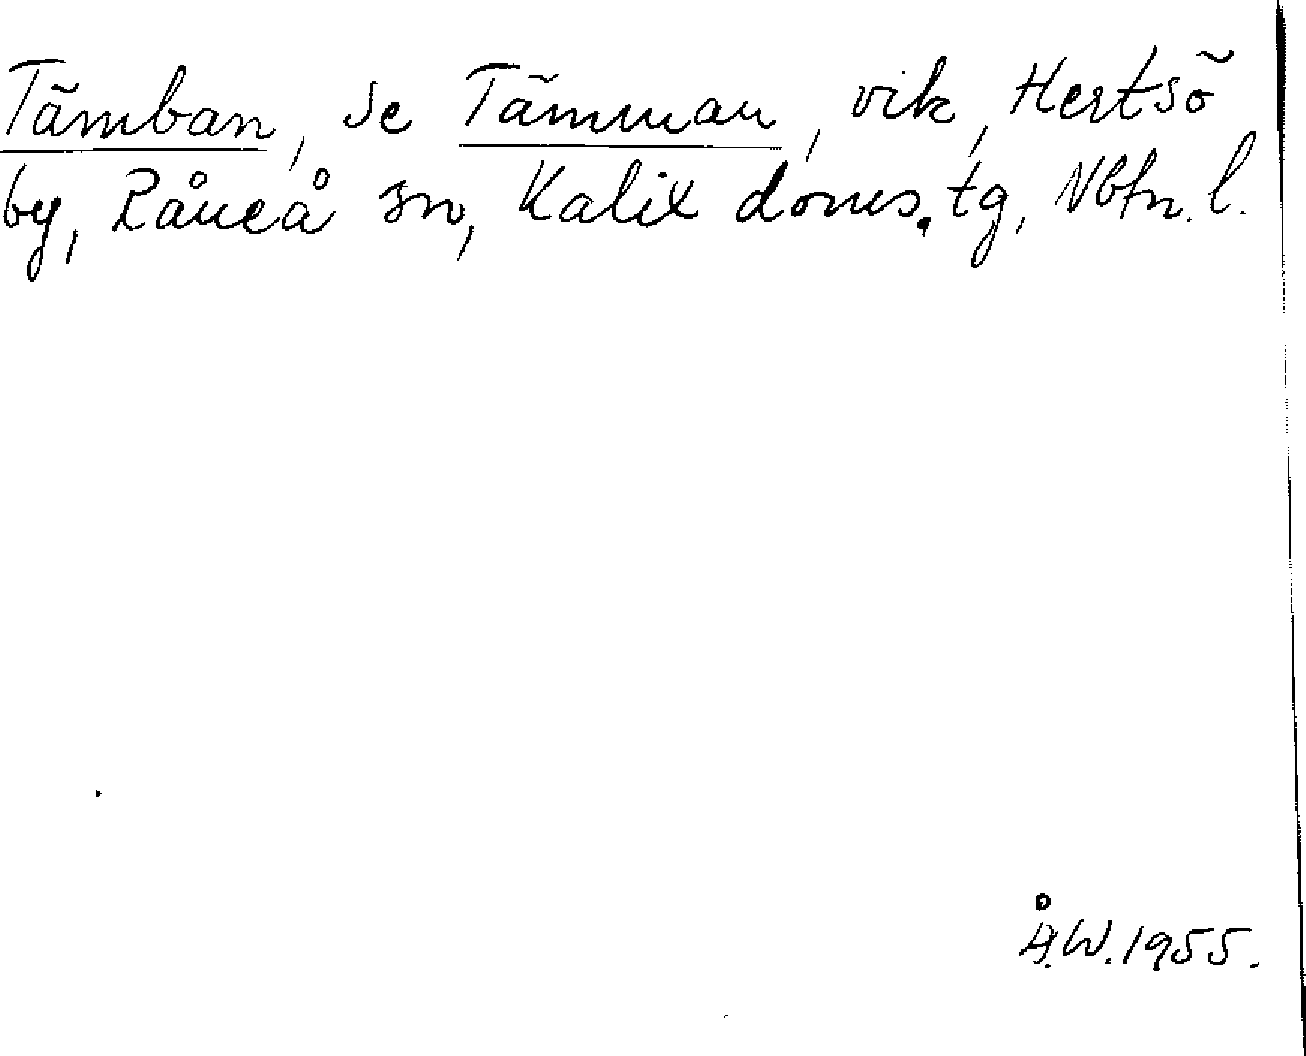 Tämban, se Tämman, vik, Hertsö
by, Råneå sn, Kalix doms. tg, Nbtn. l.
Å.W. 1955.